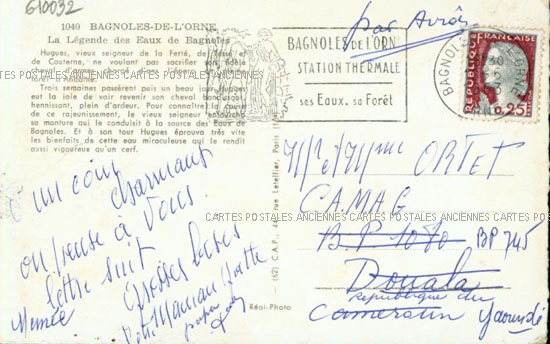 610032
1040 BAGNOLES-DE-L'ORNE
La Légende des Eaux de Bagnoles
Hugues, vieux seigneur de la Ferté, de Tessé et
de Couterne, ne voulant pas sacrifier son fidèle
CARTES POSTALES ANCIENNES CARTES POSTALES ANCIENNES CARTES POSTALES ANCIENNES CARTES POSTALES ANCIENNES
forêt d'Andaine.
Trois semaines passèrent puis un beau jour Hugues
eut la joie de voir revenir son cheval
hennissant, plein d'ardeur. Pour connaître la cause
de ce rajeunissement, le vieux seigneur
sa monture qui le conduisit à la source des Eaux de
Bagnoles. Et à son tour Hugues éprouva très vite
les bienfaits de cette eau miraculeuse qui le rendit
aussi vigoureux qu'un cerf.
par Avion
BAGNOLES DE L'ORNE
STATION THERMALE
ses Eaux. sa Forêt
BAGNOLES
REPUBLIQUE FRANÇAISE
0,25
un coin charmant
on pense à Vous
lettre suit
Grosses bises
Maman
Mémée
(62) C.A.P.
Réal-Photo
Mr et Mme ORTET
C.A.M.A.G
CARTES POSTALES ANCIENNES CARTES POSTALES ANCIENNES CARTES POSTALES
B.P 1070 BP 745
Douala
république du
Cameroun Yaoundé